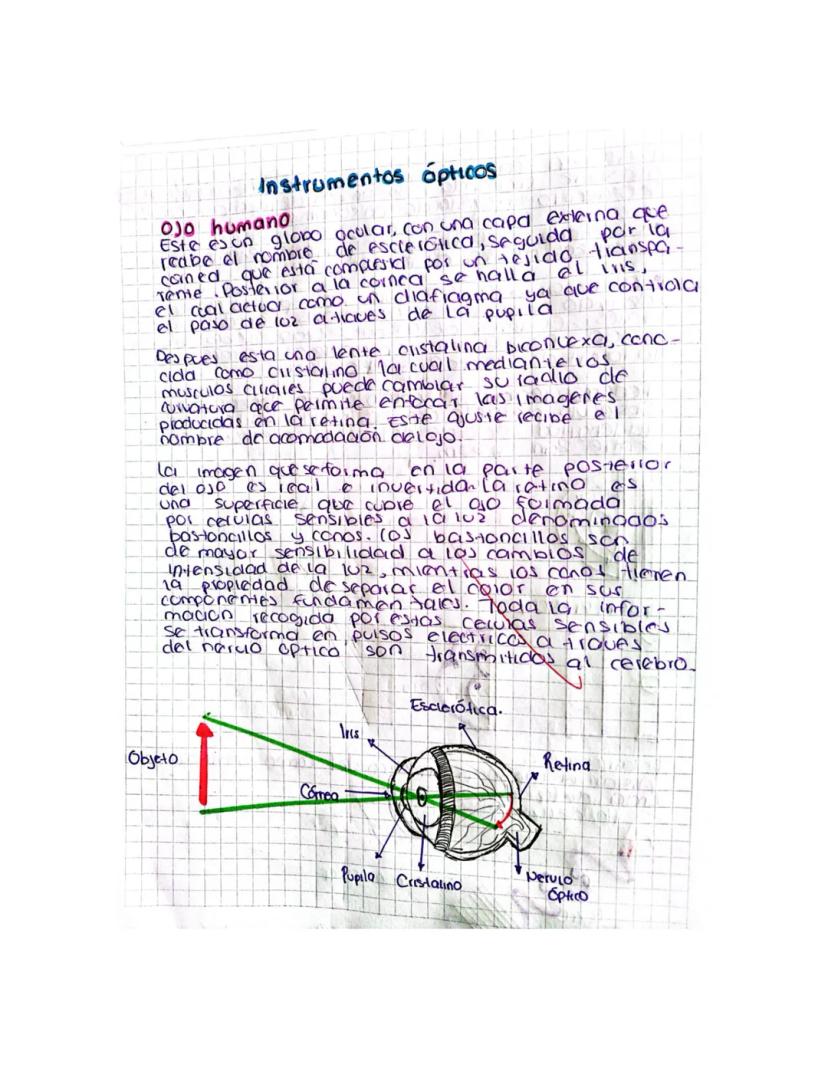 Instrumentos ópticos
Ojo humano
Este es un globo ocular, con una capa externa que
recibe el nombre de esclerótica, seguida por la
cornea que está compuesta por un tejido transpa-
rente. Posterior a la cornea se halla el iris,
el cual actua como un diafragma ya que controla
el paso de luz atraves de la pupila
Despues esta una lente cristalina biconvexa, cono-
cida como cristalino, la cual mediante los
musculos ciliares puede cambiar su radio de
curvatura que permite enfocar las imagenes
producidas en la retina. Este ajuste recibe el
nombre de acomodación del ojo.
La imagen que se forma en la parte posterior
del ojo es real e invertida. La ratina es
una superficie que cubre el ojo formada
por celulas sensibles a la luz denominados
bastoncillos y conos. Los bastoncillos son
de mayor sensibilidad a los cambios de
intensidad de la luz, mientras los conos tienen
la propiedad de separar el color en sus
componentes fundamentales. Toda la infor-
macion recogida por estas celulas sensibles
se transforma en pulsos electricos a traves
del nervio optico son transmitidos al cerebro.
Esclerótica.
Iris
Objeto
Retina
Córnea
Pupila
Cristalino
Nervio
óptico